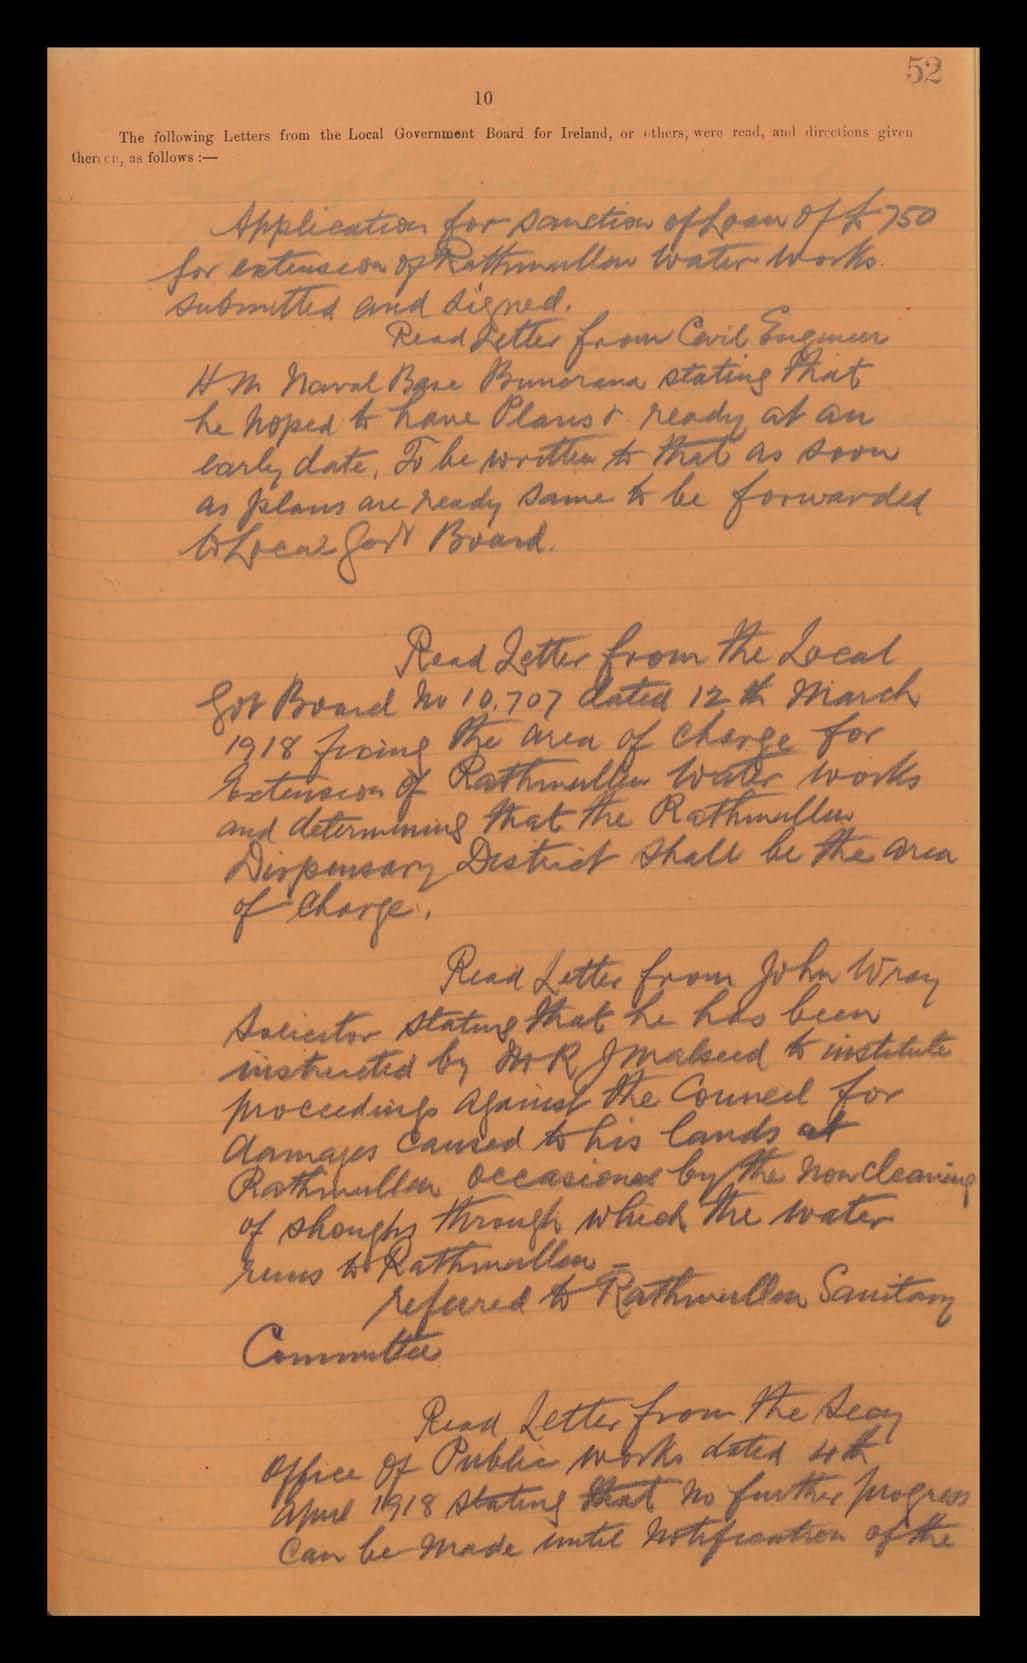 52
10
The following Letters from the Local Government Board for Ireland, or others, were read, and directions given
thereon, as follows :—
Application for sanction of Loan of £750
for extension of Rathmullen Water Works
submitted and signed.
Read Letter from Civil Engineer
H M Naval Base Buncrana stating that
he hoped to have Plans & ready at an
early date. To be written to that as soon
as plans are ready same to be forwarded
to Local Govt Board.
Read Letter from the Local
Govt Board No 10.707 dated 12th March
1918 fixing the area of charge for
Extension of Rathmullen Water Works
and determining that the Rathmullen
Dispensary District shall be the area
of Charge.
Read Letter from John Wray
Solicitor stating that he has been
instructed by Mr R J Malseed to institute
proceedings against the Council for
damages caused to his lands at
Rathmullen occasioned by the non cleaning
of shoughs through which the water
runs to Rathmullen –
referred to Rathmullen Sanitary
Committee
Read Letter from the Secy
Office of Public Works dated 4th
April 1918 stating that no further progress
can be made until notification of the